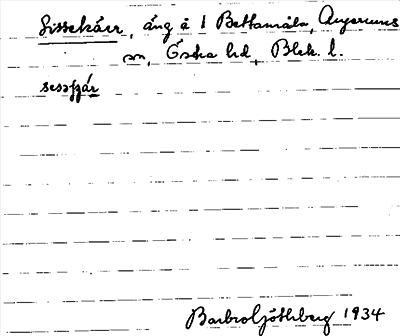 Sissekärr, äng å 1 Bettamåla, Augerums
sn, Östra hd, Blek. l.
Barbro Göthberg 1934